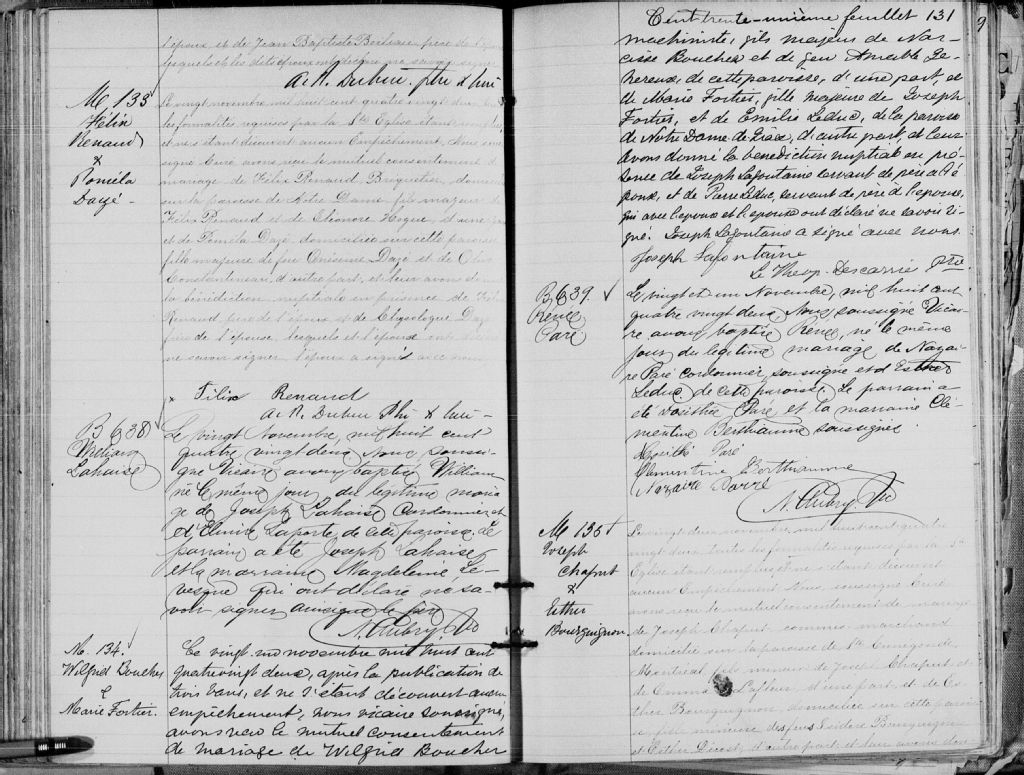 l'époux, et de Jean Baptiste Boileau père de l'épouse
lesquels et les dits époux ont déclaré ne savoir signer
A. R. Dubuc. ptre & curé
M. 133
Félix
Renaud
&
Roméla
Dazé-
Le vingt novembre mil huit cent quatre vingt deux
les formalités requises par la Ste Eglise étant remplies
et ne s'étant découvert aucun Empêchement, Nous sous
signé Curé avons reçu le mutuel consentement de
mariage de Félix Renaud Briquetier, domicilié
sur la paroisse de Notre Dame fils majeur de
Félix Renaud et de Eléonore Hogue, d'une part
et de Roméla Dazé, domiciliée sur cette paroisse
fille majeure de feu Onésime Dazé et de
Constantineau, d'autre part, et leur avons donné
la bénédiction nuptiale en présence de Félix
Renaud, père de l'époux et de Chrysologue Dazé
frère de l'épouse, lesquels et l'époux ont déclaré
ne savoir signer l'époux a signé avec nous
Félix Renaud
A. R. Dubuc Ptre & curé-
B 638
William
Lahaise
Le vingt Novembre, mil huit cent
quatre vingt deux Nous soussi-
gné Vicaire avons baptisé William
né le même jour du légitime maria
ge de Joseph Lahaise Cordonnier et
d'Elmire Laporte de cette paroisse. Le
parrain a été Joseph Lahaise
et la marraine Magdeleine Le-
vesque qui ont déclaré ne sa-
voir signer
N. Aubry Ptre
M. 134.
Wilfrid Boucher
&
Marie Fortier.
Le vingt un novembre mil huit cent
quatrevingt deux, après la publication de
trois bans, et ne s'étant découvert aucun
empêchement, nous vicaire soussigné,
avons reçu le mutuel consentement
de mariage de Wilfrid Boucher
Cent trente-unième feuillet 131
machiniste, fils majeur de Nar-
cisse Boucher et de feu Aimable Le-
hereux, de cette paroisse, d'une part, et
de Marie Fortier, fille majeure de Joseph
Fortier, et de Emilie Leduc, de la paroisse
de Notre Dame de Grâce, d'autre part et leur
avons donné la bénédiction nuptiale en pré-
sence de Joseph Lafontaine servant de père à l'é
poux, et de Pierre Leduc, servant de père à l'épouse,
qui avec l'époux et l'épouse ont déclaré ne savoir si-
gné. Joseph Lafontaine a signé avec nous.
Joseph Lafontaine
Le Theop. Descarrie ptre
B 639.
Renée
Paré
Le vingt et un Novembre, mil huit cent
quatre vingt deux Nous soussigné Vicai-
re avons baptisé Renée, né le même
jour du légitime mariage de Nazai-
re Paré cordonnier soussigné et d'Esther
Leduc de cette paroisse. Le parrain a
été Dosithée Paré et la marraine Clé-
mentine Berthiaume soussignés.
Dosithé Paré
Clementine Berthiaume
Nazaire Parré
N. Aubry. Ptre
M 135
Joseph
Chaput
&
Esther
Bourguignon
Le vingt deux novembre, mil huit cent quatre
vingt deux toutes les formalités requises par la Ste
Eglise étant remplies et ne s'étant découvert
aucun Empêchement Nous soussigné Curé
avons reçu le mutuel consentement de mariage
de Joseph Chaput commis marchand
domicilié sur la paroisse de Ste Cunégonde,
Montréal, fils mineur de Joseph Chaput et
de Emma Lafleur, d'une part, et de Es-
ther Bourguignon, domiciliée sur cette parois-
se fille mineure des feus Isidore Bourguignon
et Esther Décost, d'autre part, et leur avons don